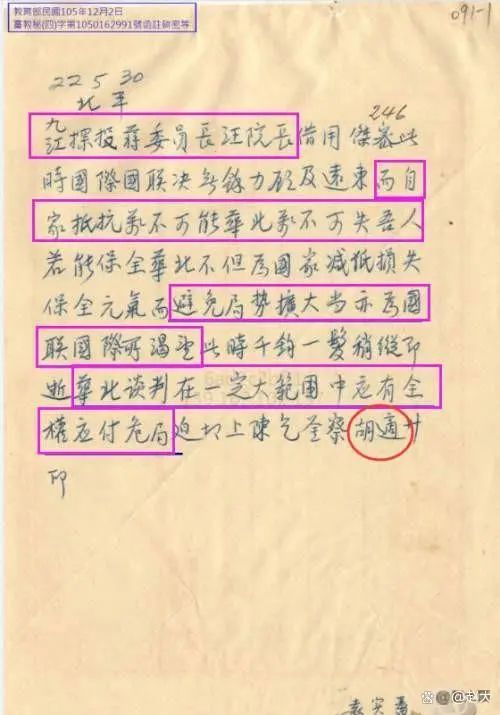 教育部民國105年12月2日
臺教秘(四)字第1050162991號函註銷密等
091-1
22 5 30
北平
246
九江探投蔣委員長汪院長借用傑密此
時國際國联决無餘力顧及遠東而自
家抵抗萬不可能華北萬不可失吾人
若能保全華北不但為國家减低損失
保全元氣而避免局势擴大当亦為國
联國際所渴望此時千鈞一髮稍縱即
逝華北谈判在一定大範囲中应有全
權应付危局迫切上陳乞鉴察胡適卅
印